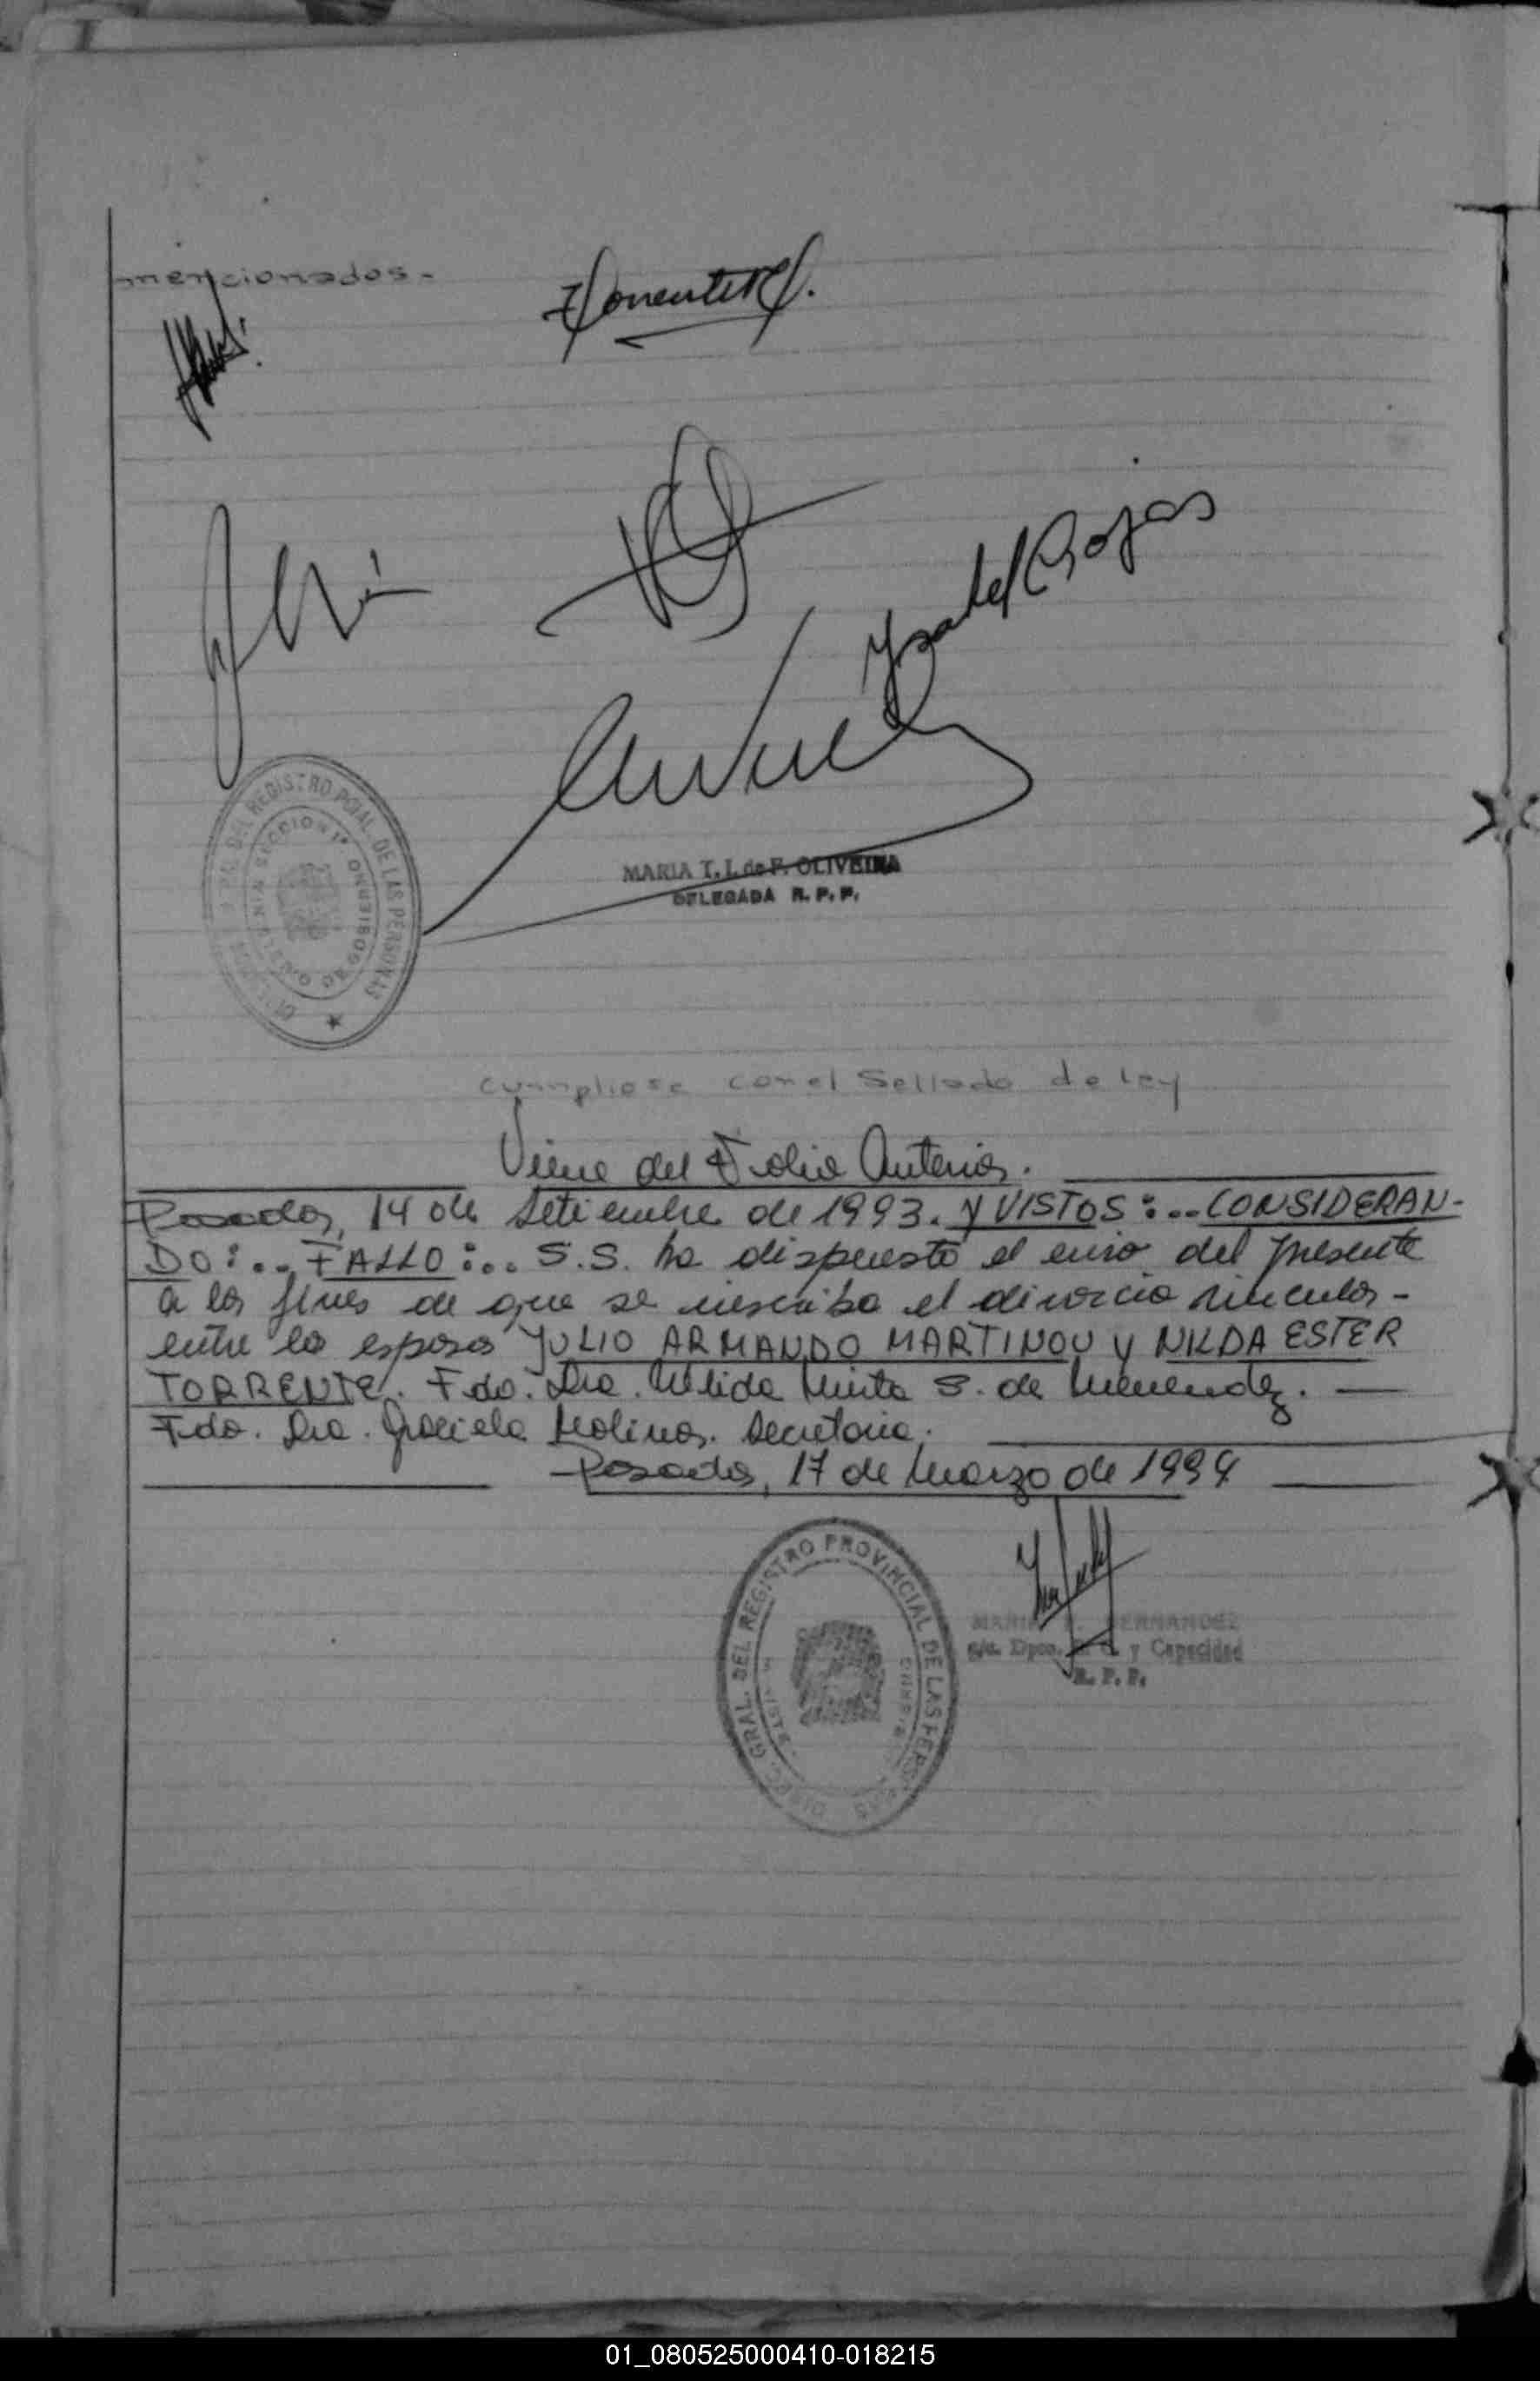 mencionados-
Ysabel Rojas
MARIA T. I. de F. OLIVEIRA
DELEGADA R. P. P.
DEL REGISTRO PCIAL. DE LAS PERSONAS
SECCION 1a
Cumpliose con el Sellado de ley
Viene del Folio Anterior.
Posadas, 14 de Setiembre de 1993. Y VISTOS:... CONSIDERAN-
DO:... FALLO:... S.S. ha dispuesto el envio del presente
a los fines de que se inscriba el divorcio vincular-
entre los esposos JULIO ARMANDO MARTINOU y NILDA ESTER
TORRENTE. Fdo. Dra. Mirta S. de Menendez.
Fdo. Dra. Graciela Molinas. Secretaria.
Posadas, 17 de Marzo de 1994
DIREC. GRAL. DEL REGISTRO PROVINCIAL DE LAS PERSONAS
MARIA HERNANDEZ
Dpto. y Capacidad
R. P. P.
01_080525000410-018215